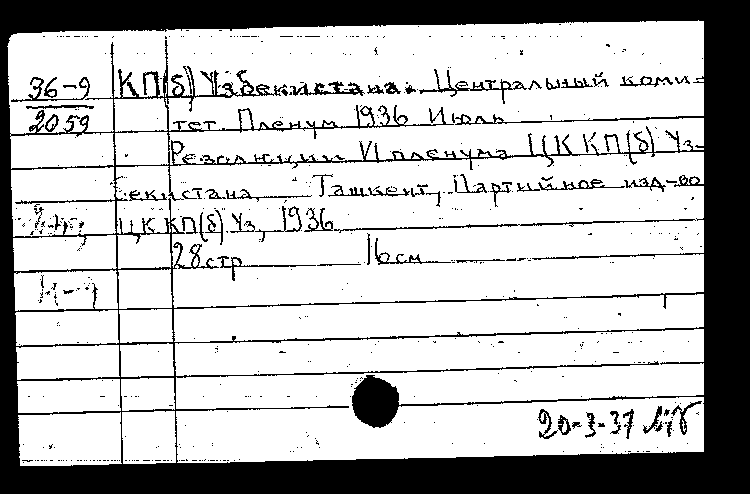 36-9 КП(б) Узбекистана. Центральный коми-
2059 тет. Пленум 1936 Июль
Резолюции VI пленума ЦК КП(б) Уз-
бекистана. Ташкент, Партийное изд-во
ЦК КП(б) Уз, 1936
28 стр 16 см
20-3-37